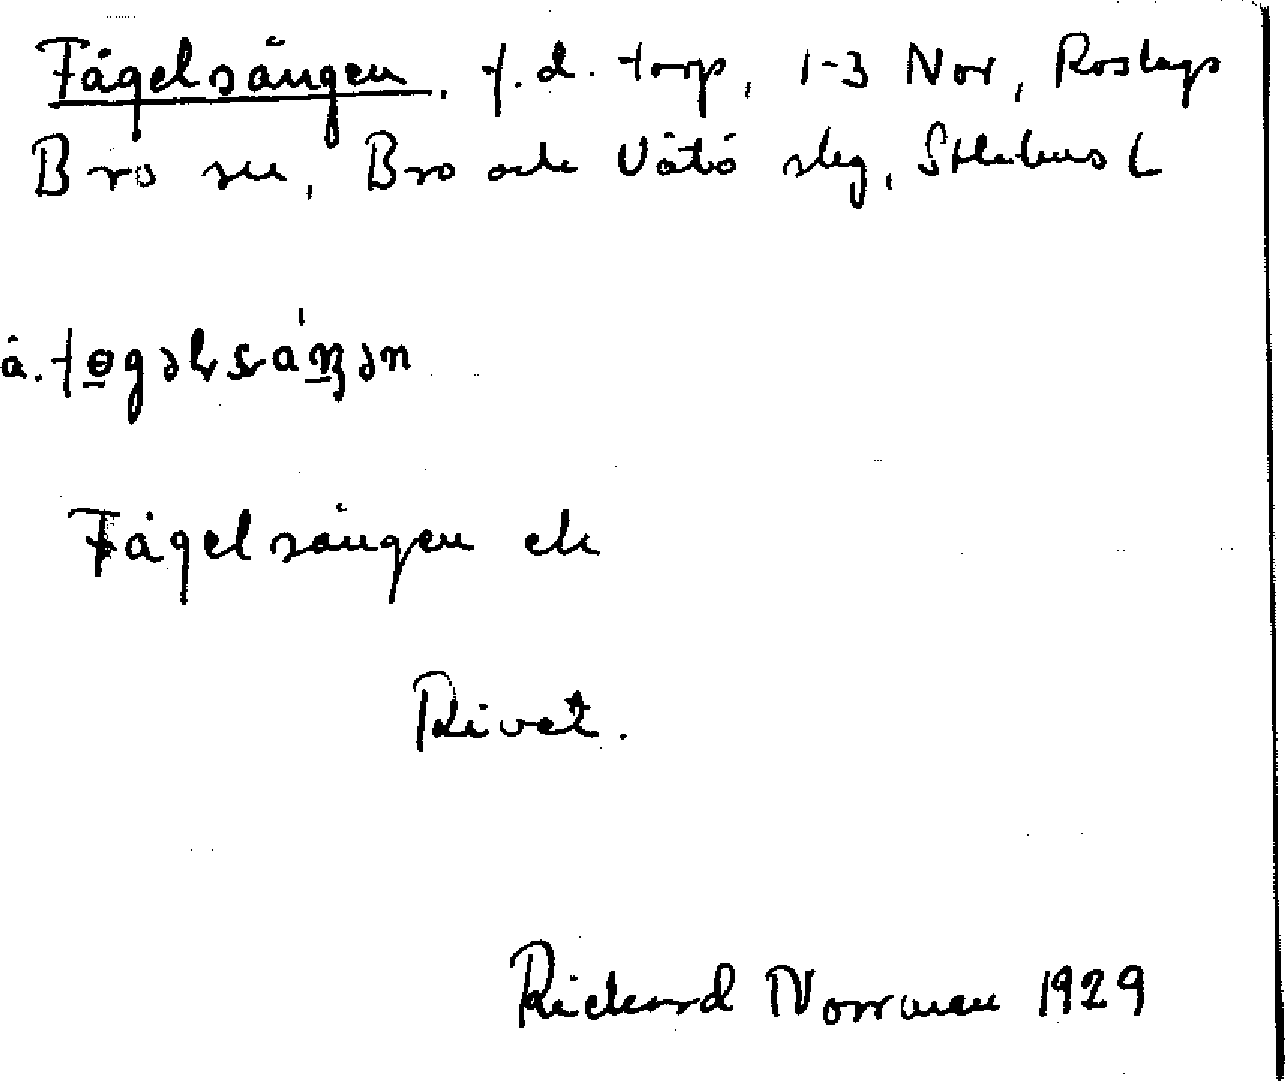 Fågelsången, f.d. torp, 1-3 Nor, Roslags
Bro sn, Bro och Vätö skg, Sthlms L
å. fo̱gəlsåŋən
Fågelsången ek
Rivet.
Rickard Norrman 1929